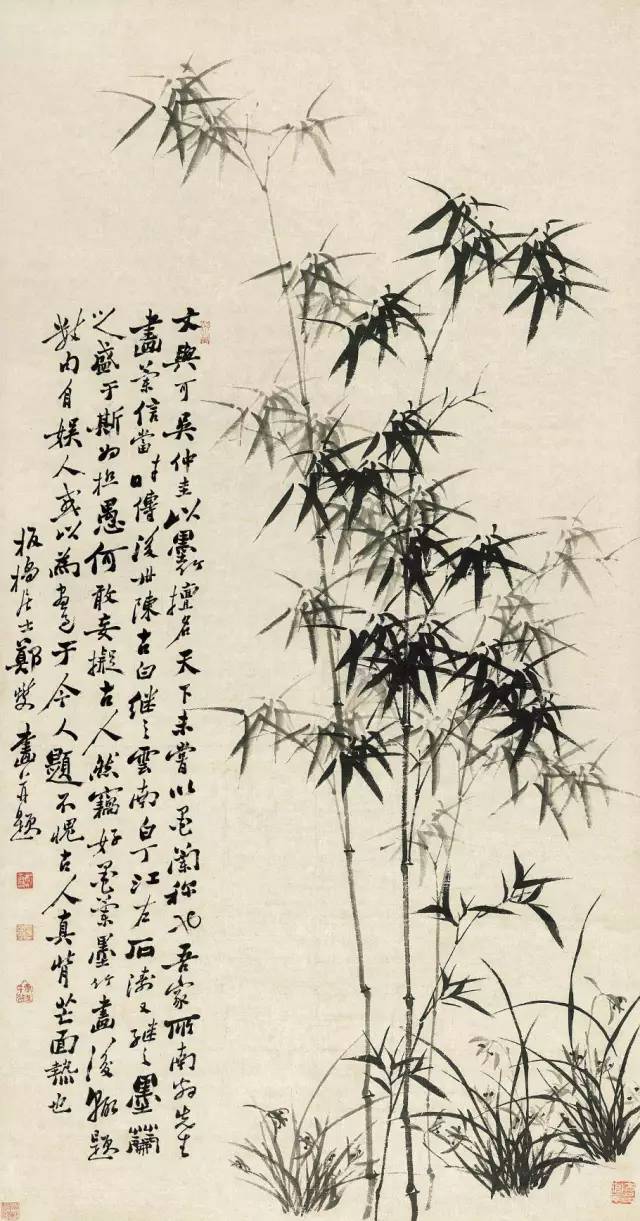 文與可吳仲圭以墨竹擅名天下未嘗以墨蘭称也吾家所南翁先生
畫蘭信當時傳後世陳古白继之雲南白丁江右石濤又继之墨蘭
之盛于斯為極愚何敢妄擬古人然竊好墨蘭墨竹畫後輒題
數句自娱人或以為畫過于今人題不愧古人真背芒面熱也
板橋居士鄭燮畫并題